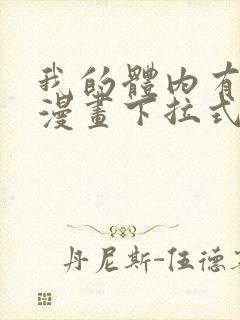 我的體內有
漫畫下拉式
丹尼斯-伍德